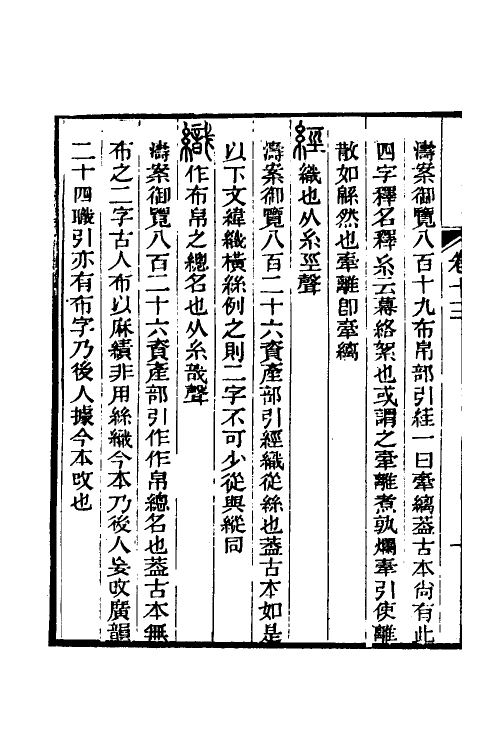 卷十三
濤案御覽八百十九布帛部引絓一曰牽縭葢古本尙有此
四字釋名釋糸云幕絡絮也或謂之牽離煮孰爛牽引使離
散如緜然也牽離卽牽縭
經織也从糸巠聲
濤案御覽八百二十六資產部引經織從絲也葢古本如是
以下文緯織橫絲例之則二字不可少從與縱同
織作布帛之總名也从糸戠聲
濤案御覽八百二十六資產部引作作帛總名也葢古本無
布之二字古人布以麻績非用絲織今本乃後人妄改廣韻
二十四職引亦有布字乃後人據今本改也